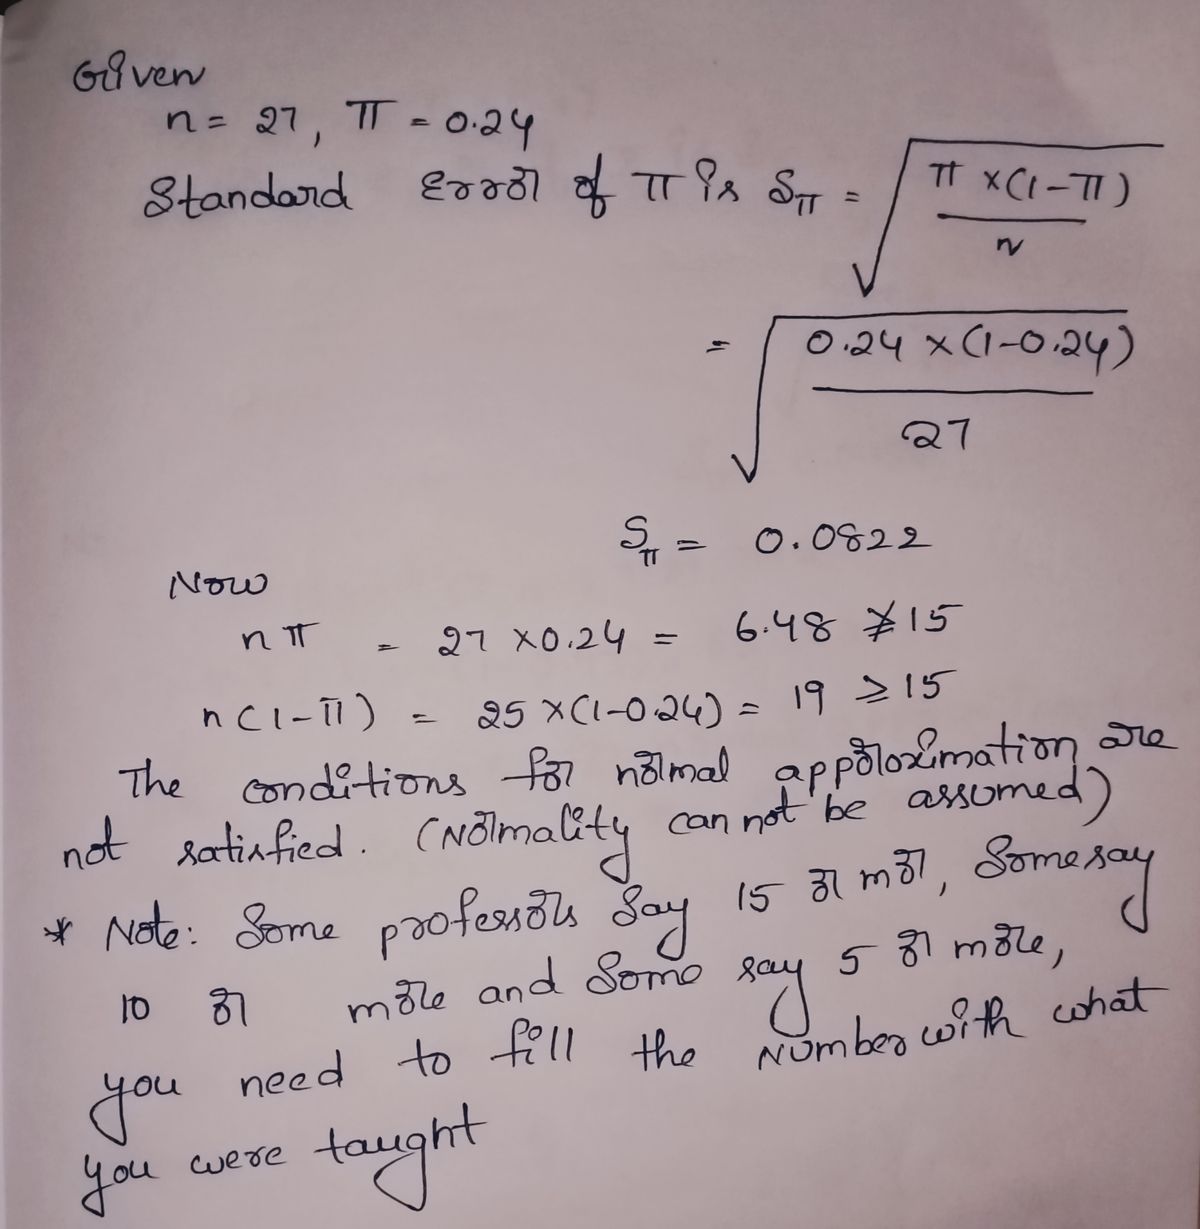 Given
n = 27, π = 0.24
Standard Error of π is Sπ = √(π × (1 - π) / n)
= √(0.24 × (1-0.24) / 27)
Sπ = 0.0822
Now
nπ = 27 × 0.24 = 6.48 ≱ 15
n(1-π) = 25 × (1-0.24) = 19 ≥ 15
The conditions for normal approximation are
not satisfied. (Normality can not be assumed)
* Note: Some professors say 15 or mor, Some say
10 or more and Some say 5 or more,
you need to fill the Number with what
you were taught